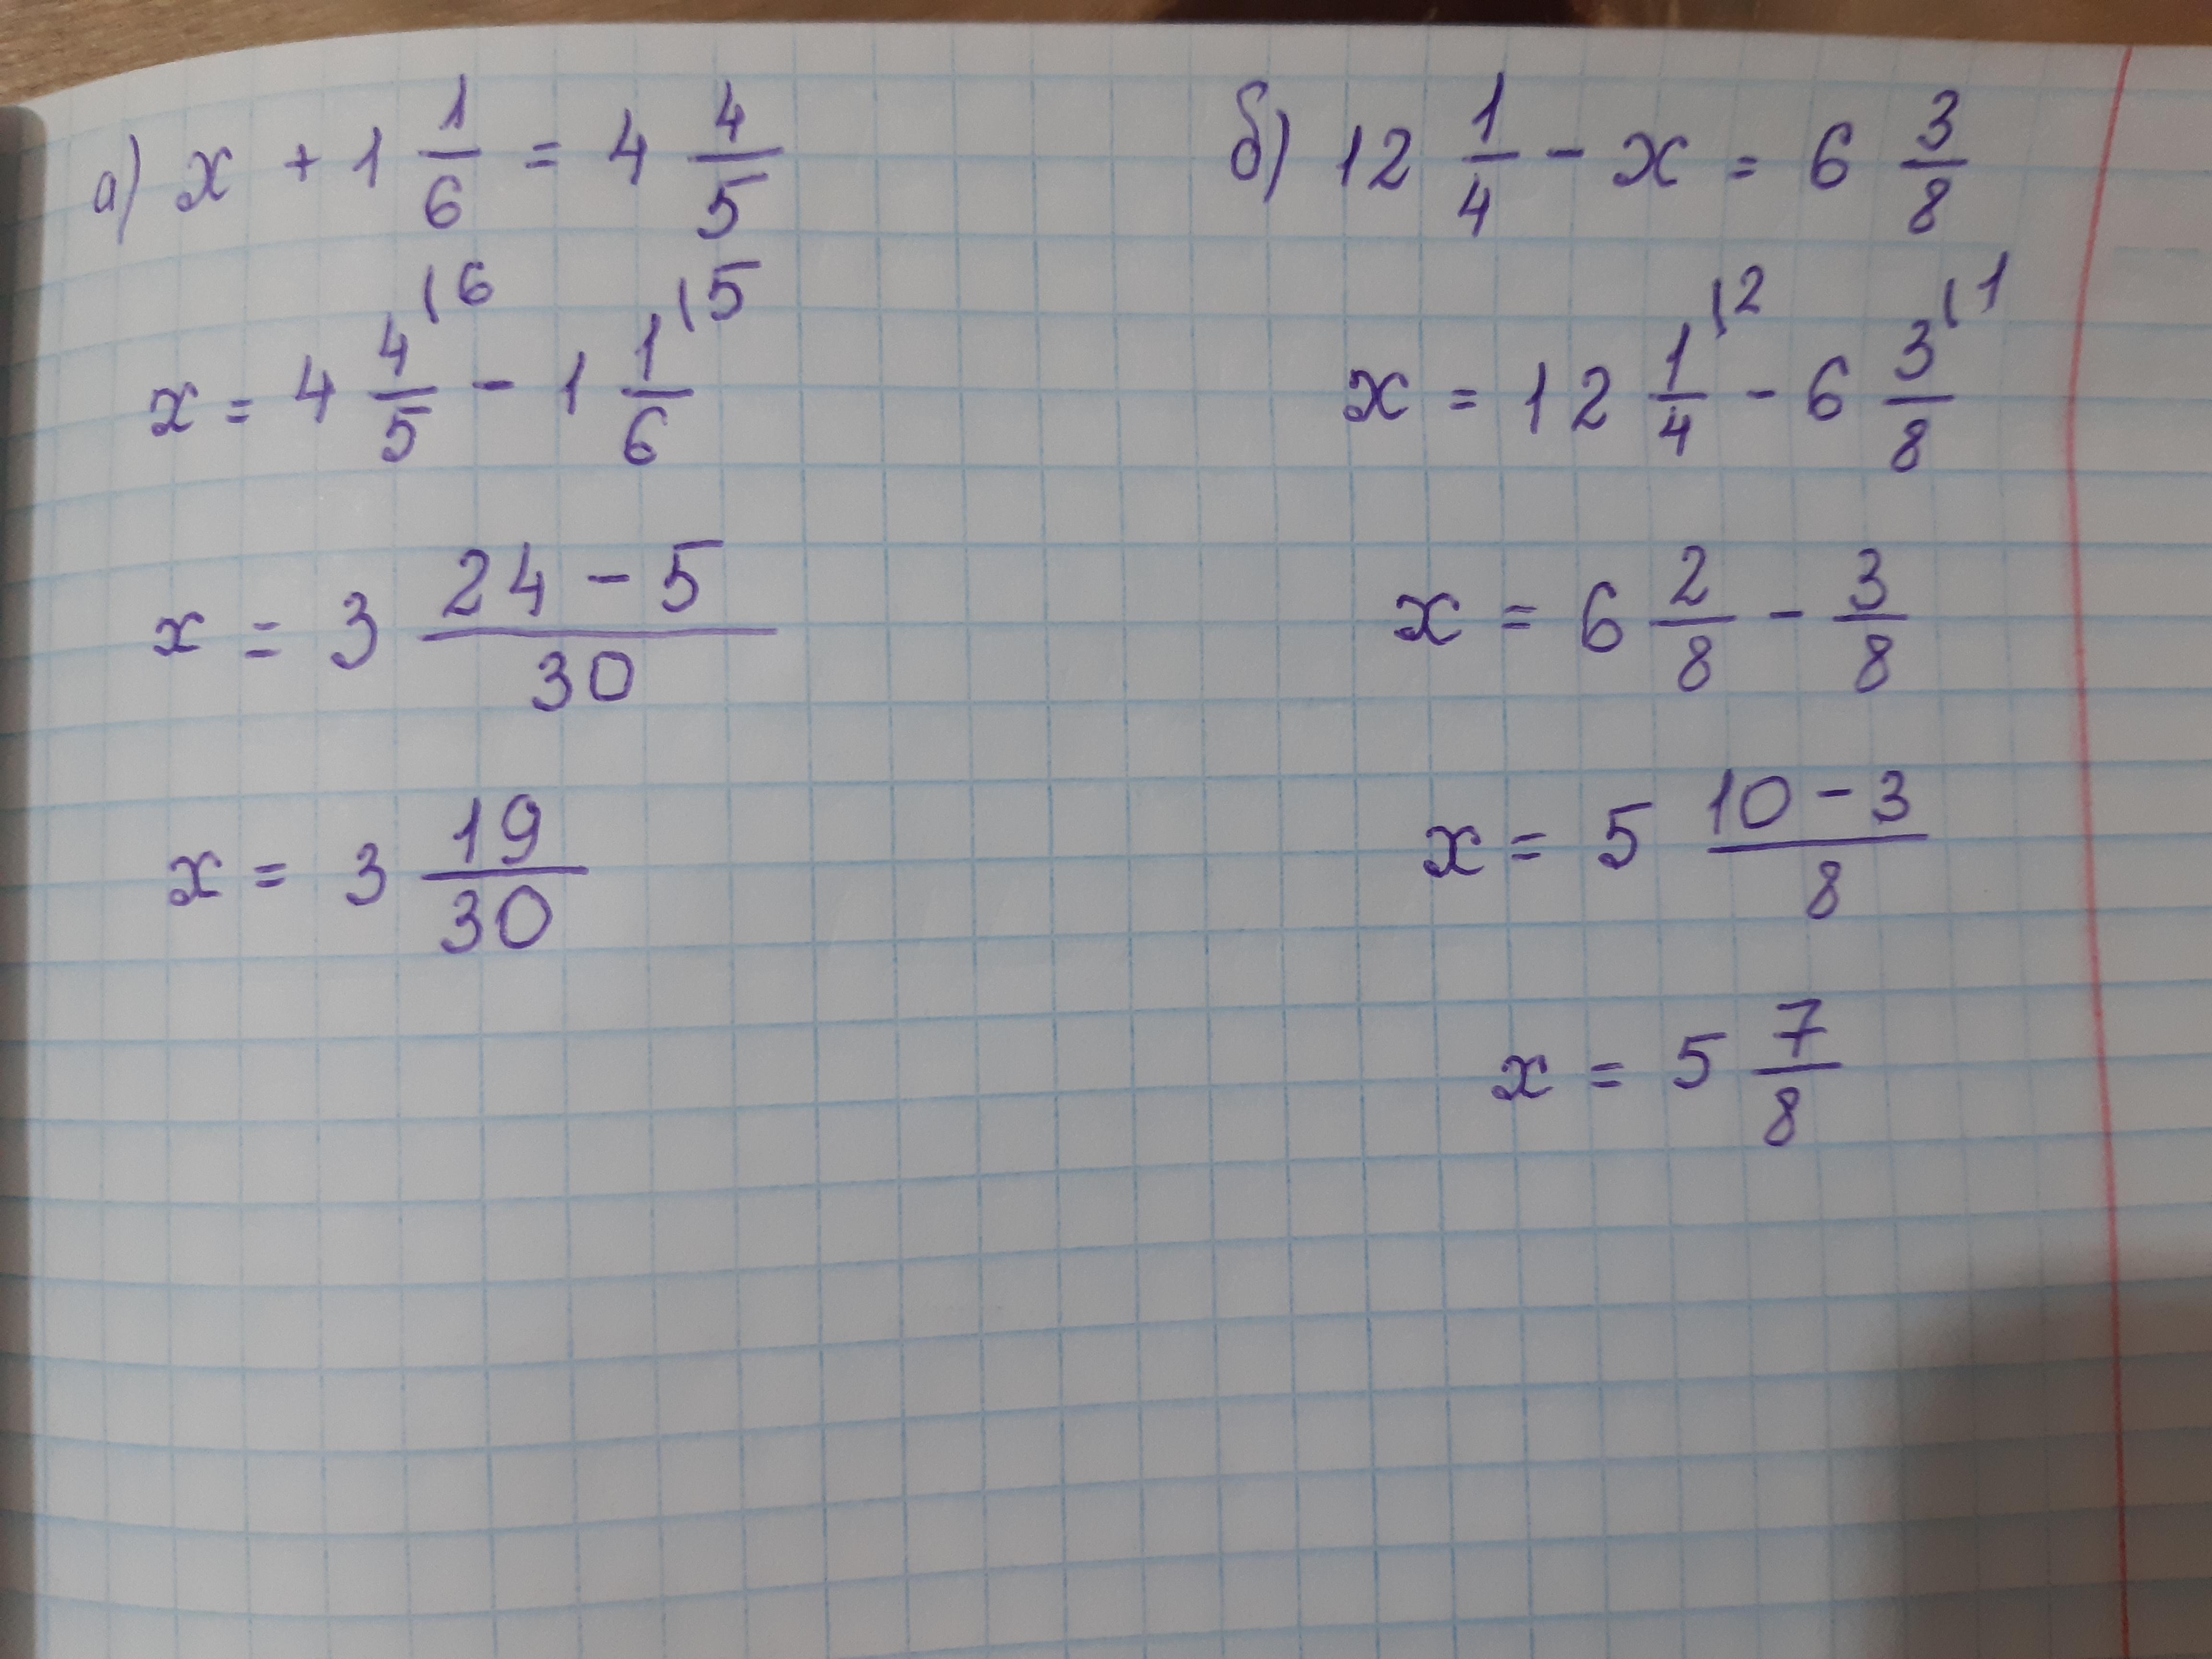 а) x + 1 1/6 = 4 4/5
x = 4 4/5 \6 - 1 1/6 \5
x = 3 (24 - 5)/30
x = 3 19/30
б) 12 1/4 - x = 6 3/8
x = 12 1/4 \2 - 6 3/8 \1
x = 6 2/8 - 3/8
x = 5 (10 - 3)/8
x = 5 7/8